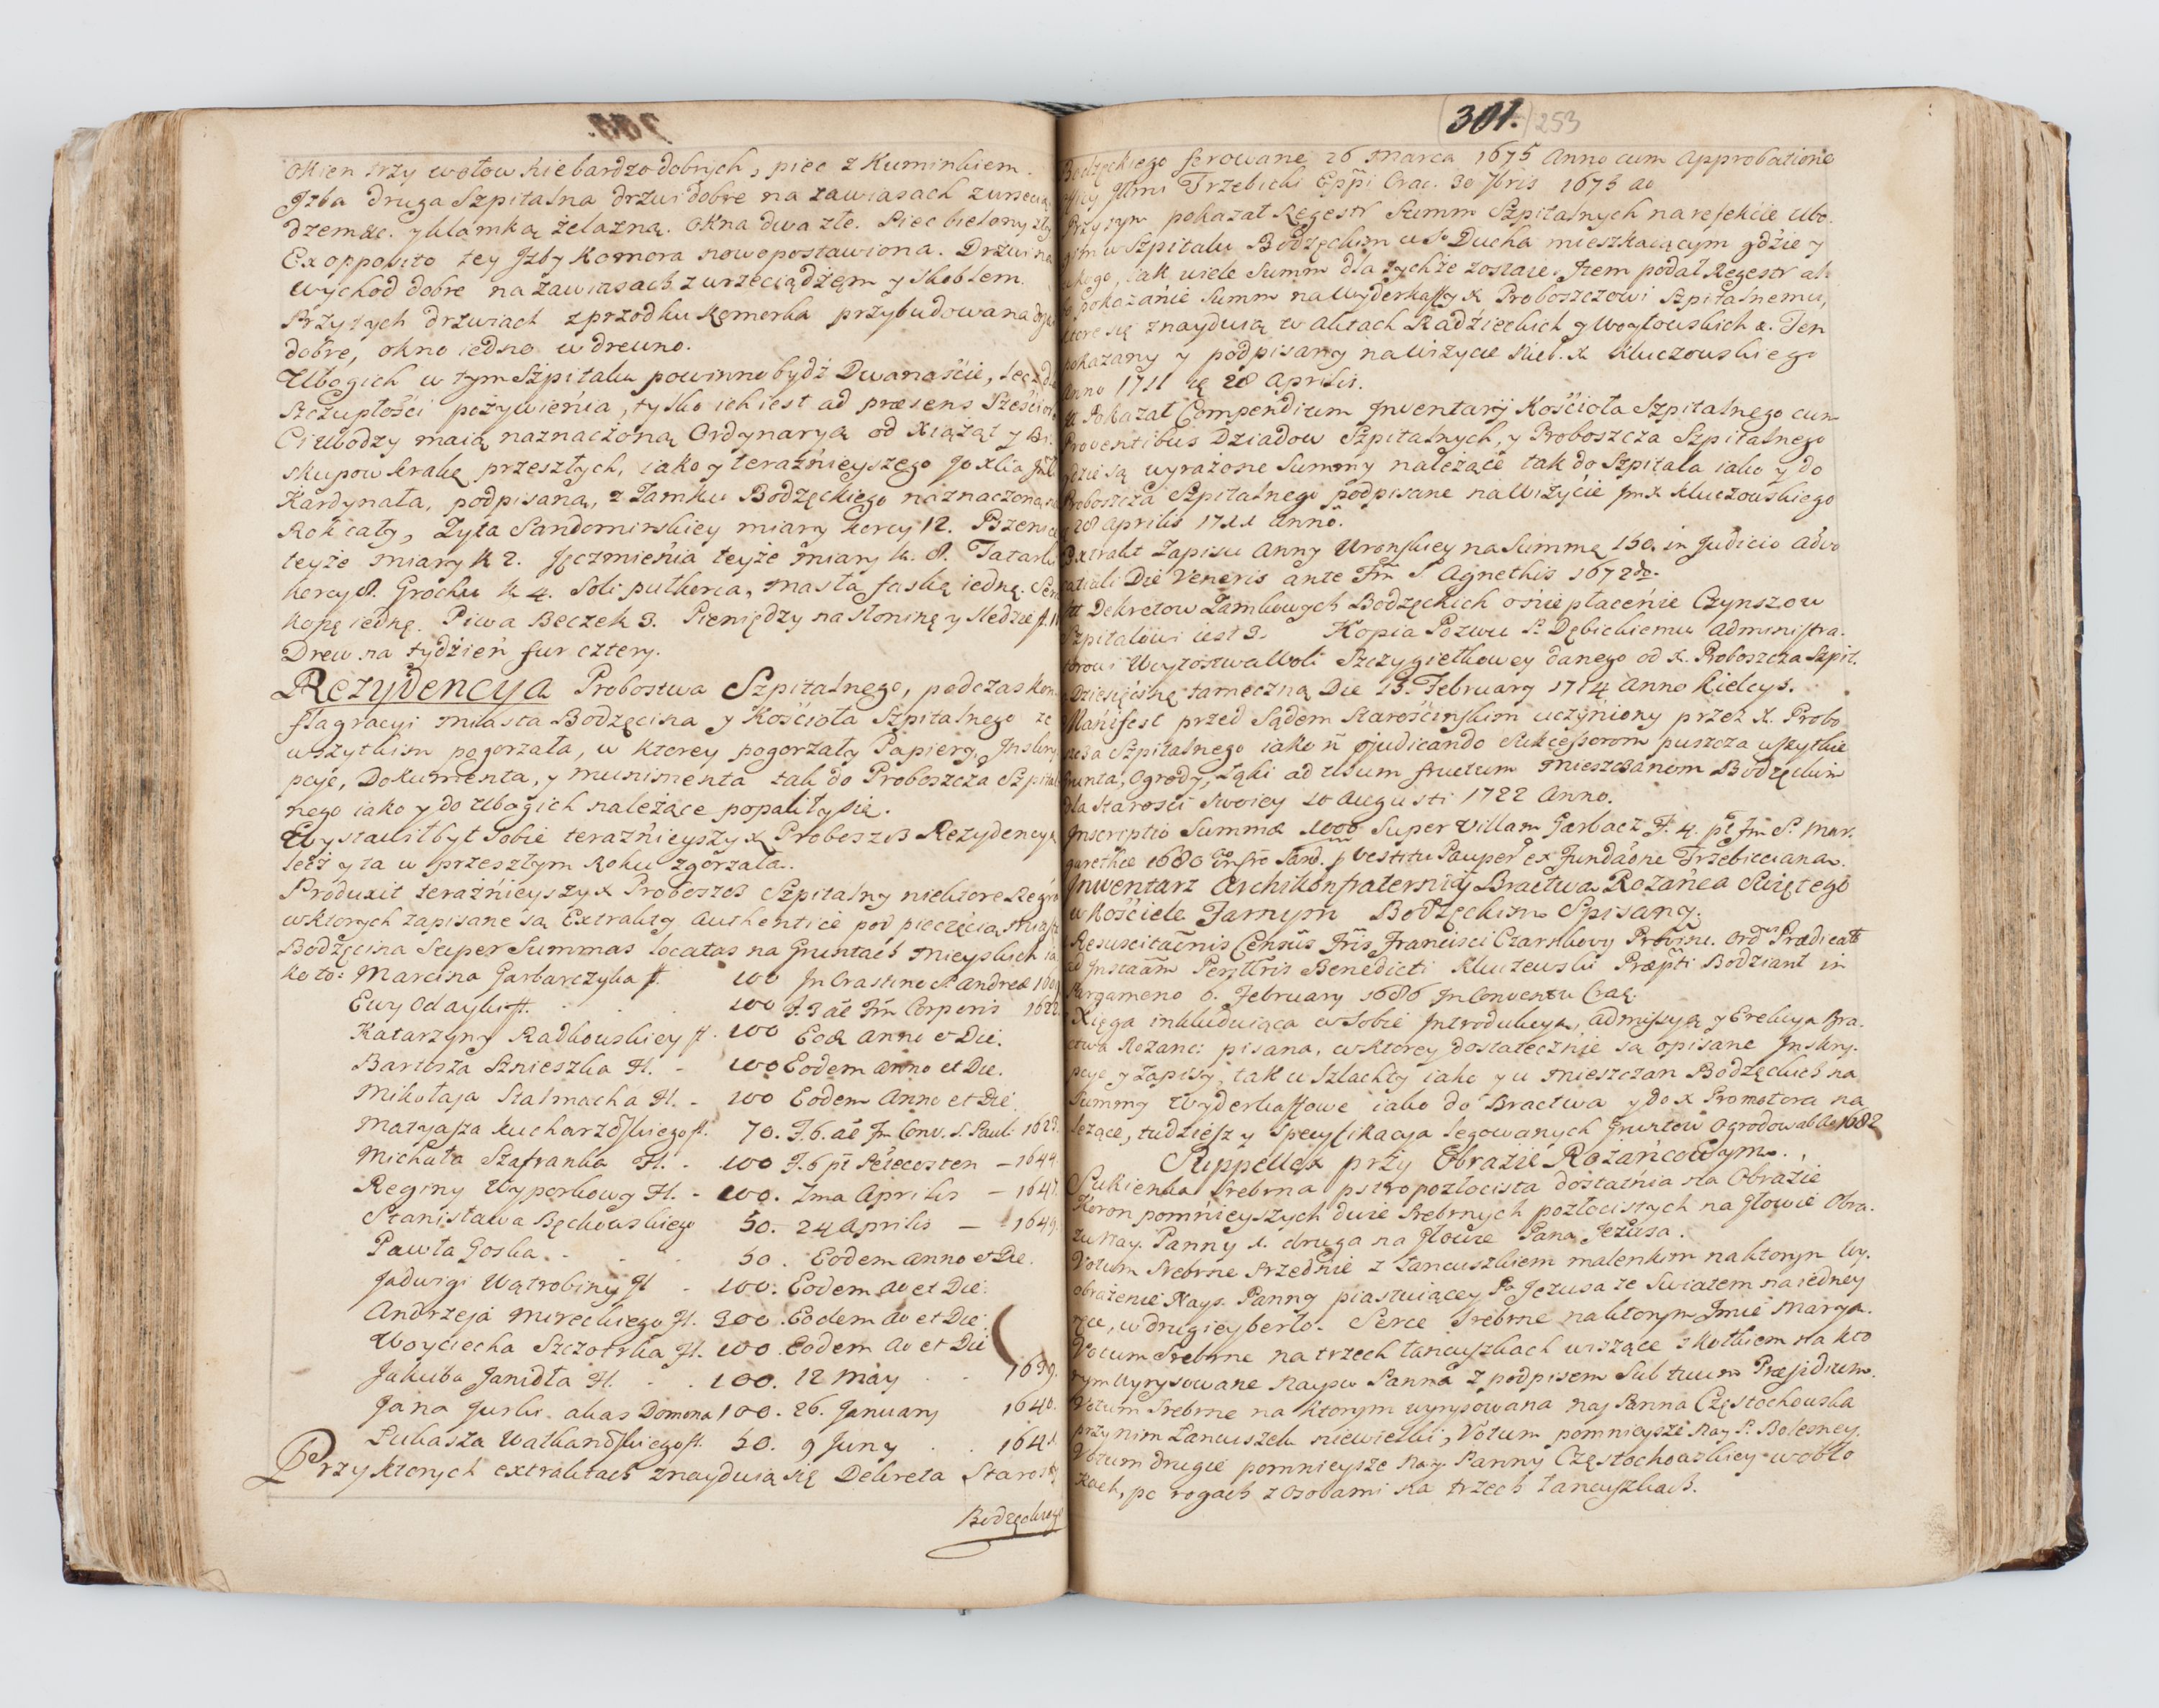 okien trzy wołow niebardzo dobrych, piec z Kuminkiem.
Jzba druga Szpitalna drzwi dobre na zawiasach z wrzecią
dzem &c. y klamką żelazną. Okna dwa złe. Piec bielony zły
Ex opposito tey Jzby Komora nowo postawiona. Drzwi na
wychod dobre na zawiasach z wrzeciądżęm y skoblem.
Przy tych drzwiach z przodku Komorka przybudowana
dobre, okno iedno w drewno.
Ubogich w tym Szpitalu powinno bydź Dwanaście, lecz dla
szczupłości pożywienia, tylko ich iest ad præsens Sześcioro
Ci ubodzy maią naznaczoną Ordynaryą od Xiążąt y Bi-
skupow krakę przeszłych, iako y teraźnieyszego
Kardynała, podpisaną, z Zamku Bodzęckiego naznaczoną, na
Rok cały, Zyta Sandomirskiey miary korcy 12. Pszenice
teyże miary k 2. Jęczmienia teyże miary k. 8. Tatarki
korcy 8. Grochu k 4. Soli pułkorca, masła faskę iednę. Serow
kopę iednę. Piwa Beczek 3. Pieniędzy na słoninę y sledzie
Drew na tydźień fur cztery.
Rezydencya Probostwa Szpitalnego, podczas kon-
flagracyi miasta Bodzęcina y Kościoła Szpitalnego ze
wszytkim pogorzała, w ktorey pogorzały Papiery, Jnskry
pcye, Dokumenta, y munimenta tak do Proboszcza Szpital
nego iako y do Ubogich należące popaliły się.
Wystawił był sobie teraźnieyszy X Proboszcz Rezydencyą
lecz y ta w przeszłym Roku zgorzała.
Produxit teraźnieyszy X Proboszcz Szpitalny niektore
w ktorych zapisane są Extrakty Authentice pod pieczęcią
Bodzęcina Super Summas locatas na Gruntach mieyskich ia
ko to: Marcina Garbarczyka fl. 100 Jn Crastino S Andreæ
Ewy Odayki fl. . . 100 F. 3 añ Fm Corporis 1622
Katarzyny Radkowskiey fl. 100 Eodē anno & Die.
Bartosza Sznieszka Fl. - 100 Eodem anno et Die.
Mikołaja Stalmacha Fl. - 100 Eodem Anno et Die
Matyasza Kucharzowskiego fl. 70. F. 6. añ Fm Conv. S. Pauli 1623.
Michała Szafranka Fl. - 100 F. 6 pt Pētecosten - 1644.
Reginy Wyperkowy Fl. - 100. 7ma Aprilis - 1647.
Stanisława Bęckowskiego 50. 24 Aprilis - 1649.
Pawła Goska . . . 50. Eodem anno et Die.
Jadwigi Wątrobiny Fl - 100. Eodem Ao et Die.
Andrzeja Mireckiego Fl. 300. Eodem Ao et Die.
Woyciecha Szczotrka Fl. 100. Eodem Ao et Die
Jakuba Janidła Fl. . . 100. 12 May . . 1639.
Jana Jurki alias Domona 100. 26. January 1640.
Łukasza Watkandskiego fl. 50. 9 Juny . . 1641.
Przy ktorych extraktach znayduią się Dekreta Starosty
Bodzęckiego
301. 253
Bodzęckiego ferowane 26 marca 1675 Anno cum Approbatione
Jllmi Trzebicki Eppi Crac. 30 7bris 1675 ao
Przytym pokazał Regestr Summ Szpitalnych na refekcie Ubo-
gim w Szpitalu Bodzęckim u S. Ducha mieszkaiącym gdzie y
u kogo, iak wiele Summ dla tychże zostaie. Jtem podał Regestr al-
bo pokazanie Summ na Wyderkaffy X Proboszczowi Szpitalnemu,
ktore się znayduią w Aktach Radzieckich y Woytowskich &. Ten
pokazany y podpisany na Wizycie X. Kluczowskiego
Anno 1711 28 Aprilis.
Jt Pokazał Compendium Jnventarij Kościoła Szpitalnego cum
Proventibus Dziadow Szpitalnych, y Proboszcza Szpitalnego
gdzie są wyrażone Summy należące tak do Szpitala iako y do
Proboszcza Szpitalnego podpisane na Wizycie Jm X Kluczowskiego
28 Aprilis 1711 anno.
Extrakt Zapisu Anny Wronskiey na Summę 150. in Judicio Advo
catiali Die Veneris ante Fm S Agnethis 1672do.
Jtt Dekretow Zamkowych Bodzęckich o nie płacenie Czynszow
Szpitalowi iest 3. Kopia Pozwu P. Dębickiemu Administra-
torowi Woytostwa Woli Szczygiełkowey danego od X. Proboszcza Szpit.
Dziesięcinę tameczną Die 13. February 1714 Anno Kielcys.
Manifest przed Sądem Starościnskim uczyniony przez X. Probo
szcza Szpitalnego iako n̄ p̄judicando Sukcessorom puszcza wszytkie
Grunta, Ogrody, Łąki ad Usum fructum Mieszczanom Bodzęckim
dla starości swoiey 10 Augusti 1722 Anno.
Jnscriptio Summæ 1000 Super Villam Garbacz F. 4. pt Fm S. Mar-
garethæ 1680 Vestitu Pauperū ex Fundaōne Trzebicciana.
Jnwentarz Archikonfraternij Bractwa Rożańca Swiętego
w Kościele Farnym Bodzęckim Spisany.
Resuscitaōnis Census Fris Francisci Czarnkovy Ordis Prædicatō
ad Jnstaam Perlltris Benedicti Kluczewski Præpti Bodziant in
Pargameno 6. February 1686 Jn Conventu Crac.
Xięga inkluduiąca w sobie Jntrodukcyą, admissyą y Erekcyą Bra-
ctwa Rozanc: pisana, w ktorey dostatecznie są opisane Jnskry-
pcye y Zapisy, tak u Szlachty iako y u mieszczan Bodzęckich na
Summy Wyderkaffowe iako do Bractwa y do X Promotora na
leżące, tudziesz y Specyfikacya legowanych Gruntow Ogrodow ab Ao 1682
Suppellex przy Obrazie Rożańcowym.
Sukienka srebrna pstro pozłocista dostatnia na Obrazie
Koron pomnieyszych dwie srebrnych pozłocistych na głowie Obra-
zu Nay. Panny 1. druga na głowie Pana Jezusa.
Votum Srebrne srzednie z Łancuszkiem malenkim na ktorym Wy-
obrażenie Nays. Panny piastuiącey P. Jezusa ze Swiatem na iedney
ręce, w drugiey berło. Serce Srebrne na ktorym Jmie Marya.
Votum Srebrne na trzech łancuszkach wiszące z kołkiem na kto
rym wyrysowane Nayśw Panna z podpisem Sub tuum Præsidium.
Votum Srebrne na ktorym wyrysowana Nay Panna Częstochowska
przy nim Łancuszek niewielki, Votum pomnieysze Nay P. Bolesney.
Votum drugie pomnieysze Nay. Panny Częstochowskiey w obło
kach, po rogach z Osobami na trzech łancuszkach.